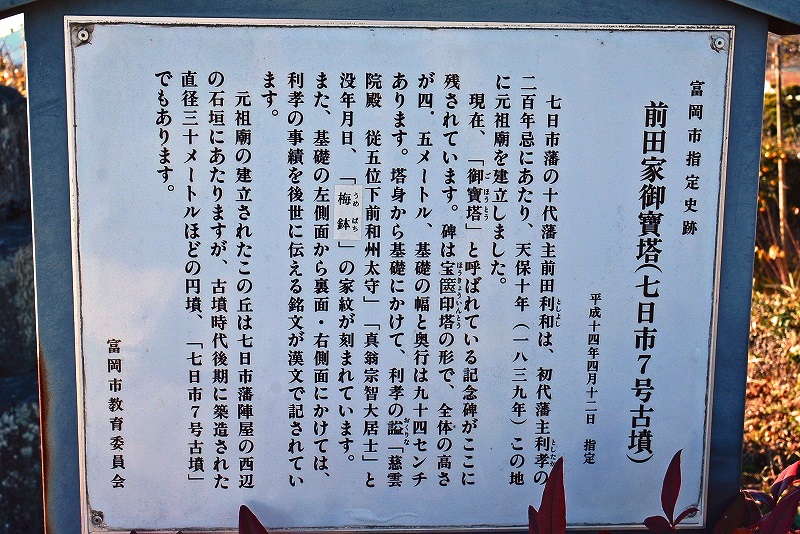 富岡市指定史跡
前田家御寶塔(七日市7号古墳)
平成十四年四月十二日 指定
七日市藩の十代藩主前田利和は、初代藩主利孝の
としよし
としたか
二百年忌にあたり、天保十年(一八三九年)この地
に元祖廟を建立しました。
現在、「御寶塔」と呼ばれている記念碑がここに
ごほうとう
残されています。碑は宝篋印塔の形で、全体の高さ
ほうきょういんとう
が四.五メートル、基礎の幅と奥行は九十四センチ
あります。塔身から基礎にかけて、利孝の諡「慈雲
おくりな
院殿 従五位下前和州太守」「真翁宗智大居士」と
没年月日、「梅鉢」の家紋が刻まれています。
うめばち
また、基礎の左側面から裏面・右側面にかけては、
利孝の事績を後世に伝える銘文が漢文で記されてい
ます。
元祖廟の建立されたこの丘は七日市藩陣屋の西辺
の石垣にあたりますが、古墳時代後期に築造された
直径三十メートルほどの円墳、「七日市7号古墳」
でもあります。
富岡市教育委員会